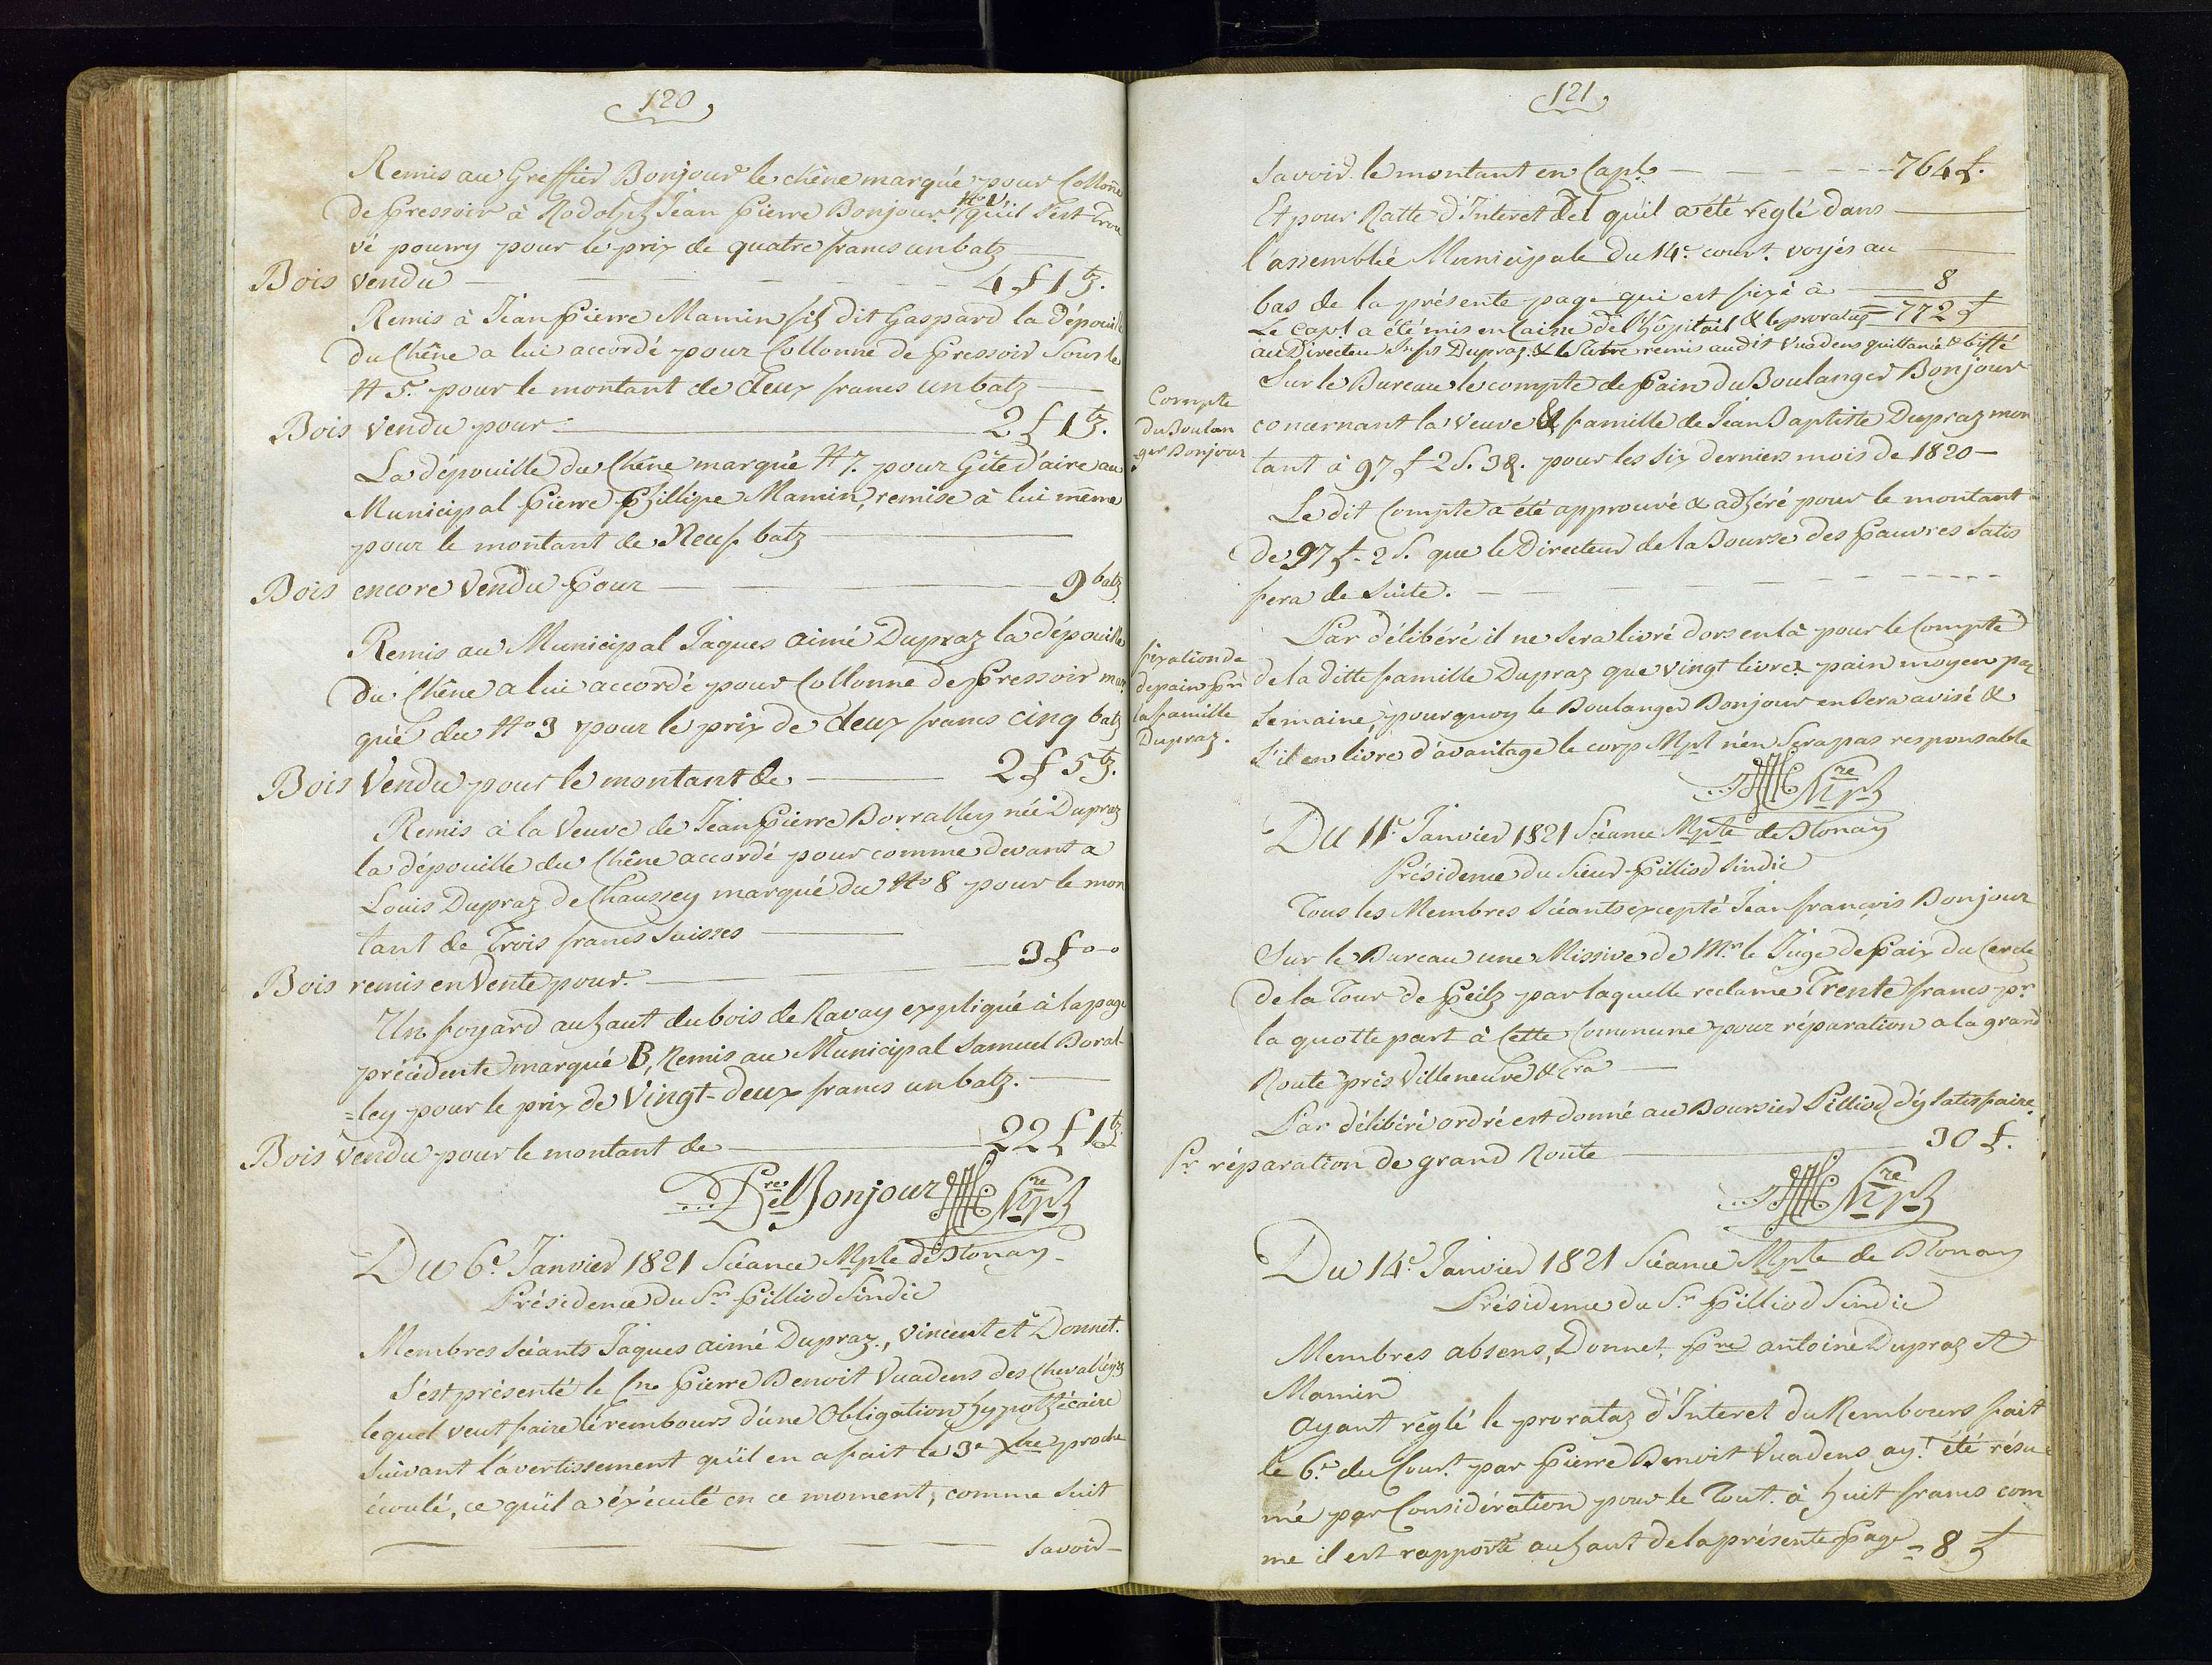 120
Remis au Greffier Bonjour le chêne marqué pour Collonne
de Pressoir à Rodolph Jean Pierre Bonjour N° 1 qu'il s'est trou
vé pourry pour le prix de quatre francs un batz
Bois vendu 4 f 1 tz.
Remis à Jean Pierre Mamin fils dit Gaspard la dépouille
du Chêne a lui accordé pour Collonne de Pressoir Sous le
N 5. pour le montant de deux francs un batz
Bois vendu pour 2 f 1 tz.
La dépouille du Chêne marqué N 7. pour Gîte d'aire au
Municipal Pierre Phillipe Mamin, remise à lui même
pour le montant de Neuf batz
Bois encore vendu pour 9 batz
Remis au Municipal Jaques aimé Dupraz la dépouille
du Chêne a lui accordé pour Collonne de Pressoir mar
qué du N° 3 pour le prix de deux francs cinq batz
Bois Vendu pour le montant de 2 f 5 tz.
Remis à la Veuve de Jean Pierre Borralley née Dupraz
la dépouille du Chêne accordé pour comme devant a
Louis Dupraz de Chaussey marqué du N° 8 pour le mon
tant de Trois francs Suisses
Bois remis en Vente pour. 3 f 0-0
Un foyard au haut du bois de Ravay expliqué à la page
précédente marqué B, Remis au Municipal Samuel Boral-
=ley pour le prix de Vingt-deux francs un batz.
Bois vendu pour le montant de 22 f 1 tz
Bonjour
Du 6e. Janvier 1821 Séance Mple de Blonay
Présidence du Sr Pilliod Sindic
Membres séants Jaques aimé Dupraz, Vincent et Donnet.
S'est présenté le Cne Pierre Benoit Vuadens des Chevalleyz
lequel veut faire le rembours d'une Obligation hypothécaire
Suivant l'avertissement qu'il en a fait le 3e Xbre proche
écoulé, ce qu'il a éxécuté en ce moment, comme Suit
Savoir
121
Savoir le montant en Capl. 764 f.
Et pour Ratte d'Interet tel qu'il a été réglé dans
l'assemblée Municipale du 14e. court. voyés au
bas de la présente page qui est fixé à 8
Le Capl a été mis en Caisse de l'hôpital & le prorataz 772 f
au Directeur Dupraz. & le Titre remis audit Vuadens quittancé & biffé
Compte du Boulan ger Bonjour
Sur le Bureau le compte de Pain du Boulanger Bonjour
concernant la veuve & famille de Jean Baptiste Dupraz mon
tant à 97 f 2 s. 3 d. pour les six derniers mois de 1820
Le dit Compte a été approuvé & adhéré pour le montant
de 97 f - 2 s. que le Directeur de la Bourse des Pauvres Satis
fera de Suite.
fixation de de pain pr la famille Dupraz.
Par délibéré il ne Sera livré dors en là pour le Compte
de la ditte famille Dupraz que vingt livres pain moyen par
Semaine, pourquoy le Boulanger Bonjour en Sera avisé &
S'il en livre d'avantage le corp Mpl n'en Sera pas responsable
Du 11e Janvier 1821 Séance Mple de Blonay
Présidence du Sieur Pilliod Sindic
Tous les Membres Séants excepté Jean francois Bonjour
Sur le Bureau une Missive de Mr. le Juge de Paix du Cercle
de la Tour de Peilz par laquelle reclame Trente francs pr.
la quotte part à Cette Commune pour réparation a la grand
Route près Villeneuve & Cra
Par délibéré ordré est donné au Boursier Pilliod d'y Satisfaire.
Pr. réparation de grand Route 30 f.
Du 14e. Janvier 1821 Séance Mple de Blonay
Présidence du Sr. Pilliod Sindic
Membres absens, Donnet, Pre antoine Dupraz et
Mamin
ayant réglé le prorataz d'Interet du Rembours fait
le 6e. du Court. par Pierre Benoit Vuadens, ayt. été résu
mé par Considération pour le Tout. à huit francs com
me il est rapporté au haut de la présente Page = 8 f